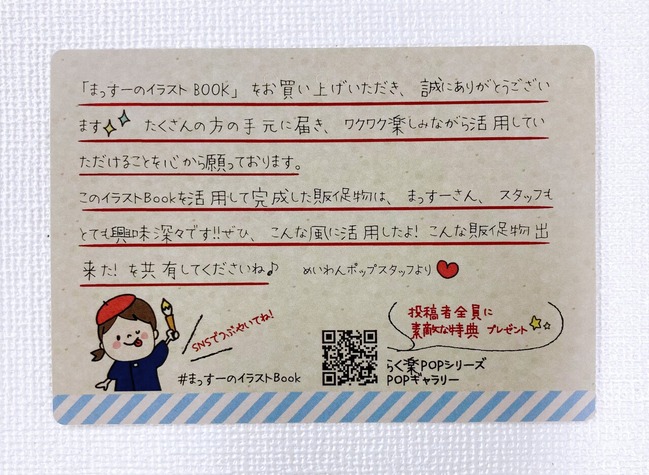 「まっすーのイラストBOOK」をお買い上げいただき、誠にありがとうござい
ます たくさんの方の手元に届き、ワクワク楽しみながら活用してい
ただけることを心から願っております。
このイラストBookを活用して完成した販促物は、まっすーさん、スタッフも
とても興味深々です!!ぜひ、こんな風に活用したよ!こんな販促物出
来た!を共有してくださいね♪ めいわんポップスタッフより
SNSでつぶやいてね!
#まっすーのイラストBook
投稿者全員に
素敵な特典 プレゼント
らく楽POPシリーズ
POPギャラリー